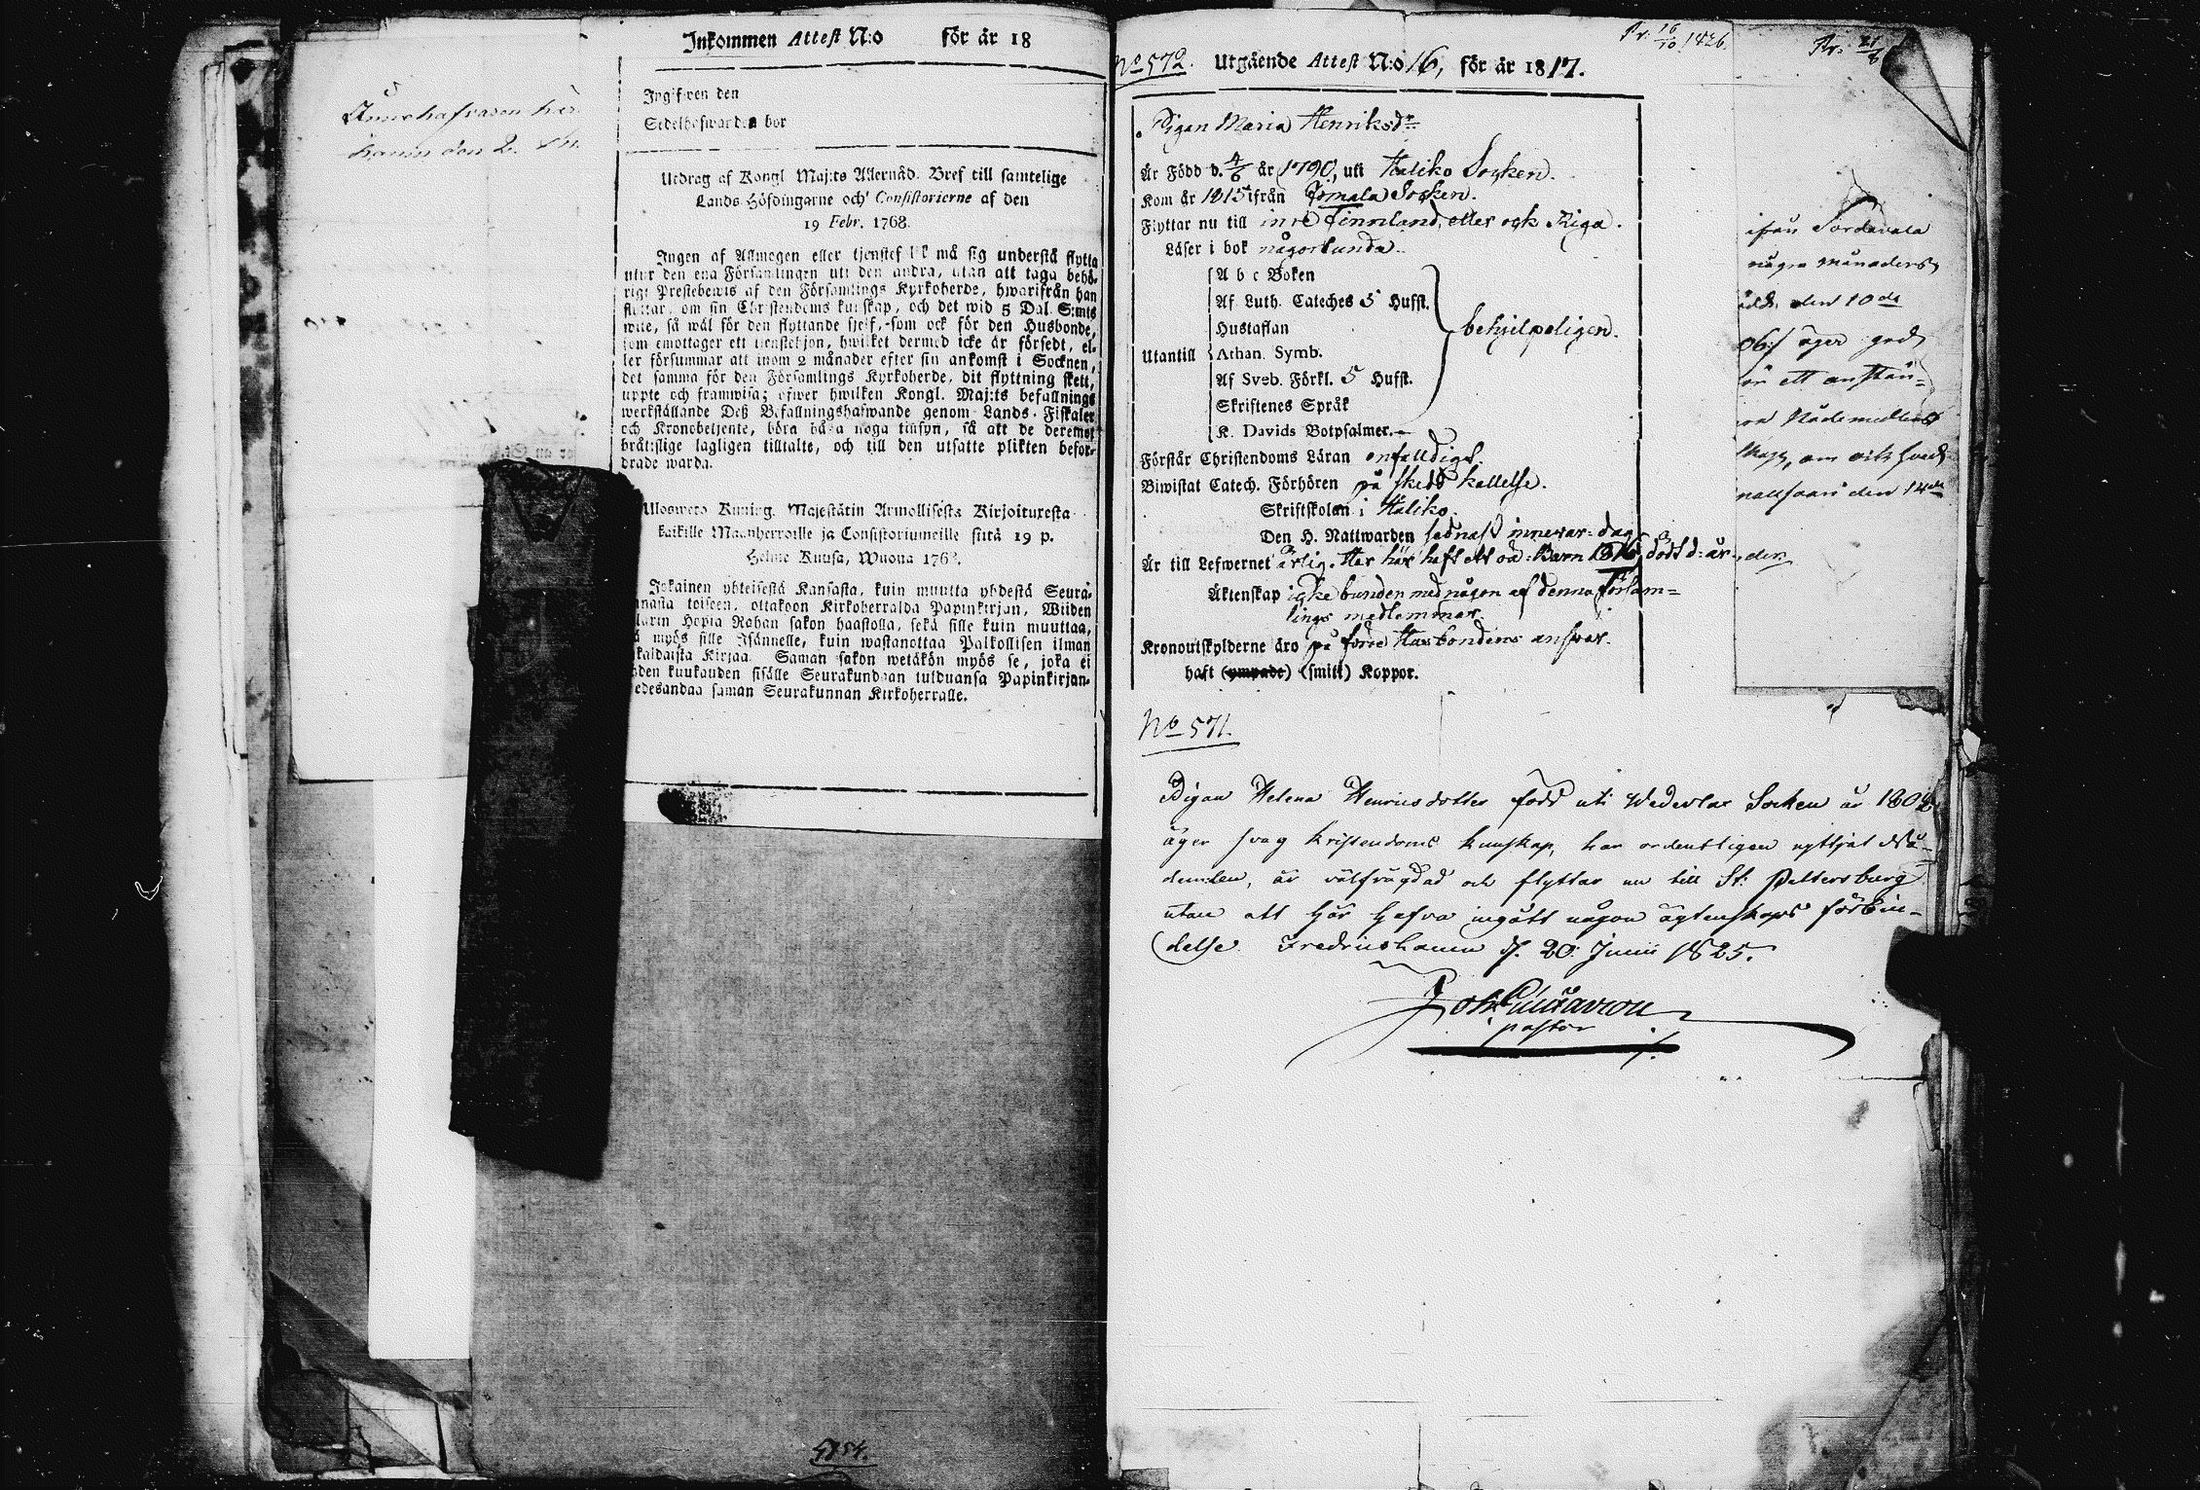 Innehafvaren här
hamn den 2.
Inkommen Attest N:o för år 18
Ingifven den
Sedelhafwarden bor
Utdrag af Kongl Maj:ts Allernåd. Bref till samtelige
Lands Höfdingarne och Consistorierne af den
19 Febr. 1768.
Ingen af Allmogen eller tjenstefolk må sig understå flytta
utur den ena Församlingen uti den andra, utan att taga behö-
rigt Prestebewis af den Församlings Kyrkoherde, hwarifrån han
flyttar, om sin Christendoms kunskap, och det wid 5 Dal. S:mts
wite, så wäl för den flyttande sjelf, som ock för den Husbonde,
som emottager ett tienstehjon, hwilket dermed icke är försedt, el-
ler försummar att inom 2 månader efter sin ankomst i Socknen,
det samma för den Församlings Kyrkoherde, dit flyttning skett,
uppte och framwisa; öfwer hwilken Kongl. Maj:ts befallnings
werkställande Deß Befallningshafwande genom Lands-Fiskaler
och Kronobetjente, böra hafwa noga tillsyn, så att de deremot
brätslige lagligen tilltalte, och till den utsatte plikten befor-
drade warda.
Ulosweto Kuning. Majestätin Armollisesta Kirjoituxesta
kaikille Maanherroille ja Consistoriumeille siitä 19 p.
Helme Kuusa, Wuona 1768.
Jokainen yhteisestä Kansasta, kuin muutta yhdestä Seura-
nnasta toiseen, ottakoon Kirkoherralda Papinkirjan, Wiiden
larin Hopia Rahan sakon haastolla, sekä sille kuin muuttaa,
ä myös sille Isännelle, kuin wastanottaa Palkollisen ilman
kaldaista Kirjaa. Saman sakon wetäkön myös se, joka ei
hden kuukauden sisälle Seurakundaan tulduansa Papinkirjan-
edesandaa saman Seurakunnan Kirkoherralle.
4854.
Pr. 16/10 1826.
No 572. Utgående Attest N:o 16, för år 1817.
Pigan Maria Henriksdr
Är Född d. 4/6 år 1790, uti Haliko Socken.
Kom år 1815 ifrån Jomala Socken.
Flyttar nu till inre Finnland, eller ock Riga.
Läser i bok någorlunda.
A b c Boken
Af Luth. Cateches 5 Hufst.
Hustaflan
Utantill Athan. Symb. behjelpeligen.
Af Sveb. Förkl. 5 Hufst.
Skriftenes Språk
K. Davids Botpsalmer.
Förstår Christendoms Läran enfaldigt.
Biwistat Catech. Förhören på skedd kallelse.
Skriftskolan i Haliko.
Den H. Nattwarden sednast innevar: dag
Är till Lefwernet ärlig. Har här haft ett oä: Barn 1816, dödt d: år
Äktenskap icke bunden med någon af denna Försam-
lings medlemmar.
Kronoutskylderne äro på förre Husbondens ansvar.
haft (ympade) (smitt) Koppor.
Pr. 21/8
ifrån Sordavala
några månaders
den 10de
06:/ äger god
är ett anstän-
Nådemedlen
den 14de
der.
No 571.
Pigan Helena Henricsdotter född uti Wederlax Socken år 1802
äger svag kristendoms kunskap, har ordentligen nyttjat Nå-
demedlen, är välfrägdad och flyttar nu till St: Pettersburg
utan att här hafva ingått någon ägtenskaps förbin-
delse. Fredricshamn d. 20. Junii 1825.
pastor